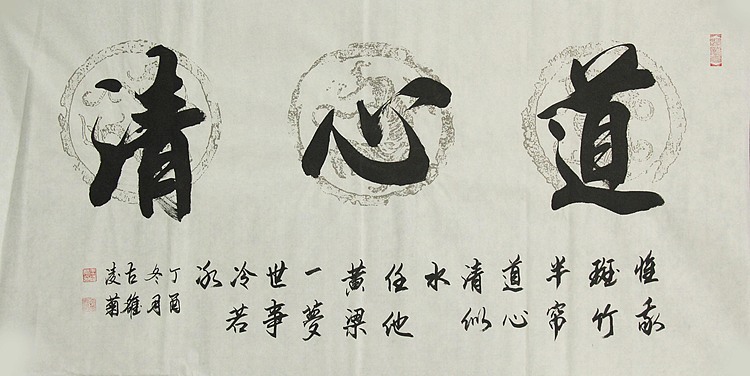 道心清
惟我
斑竹
半帘
道心
清似
水
任他
黄粱
一夢
世事
冷若
冰
丁酉
冬月
古雄
凌菊